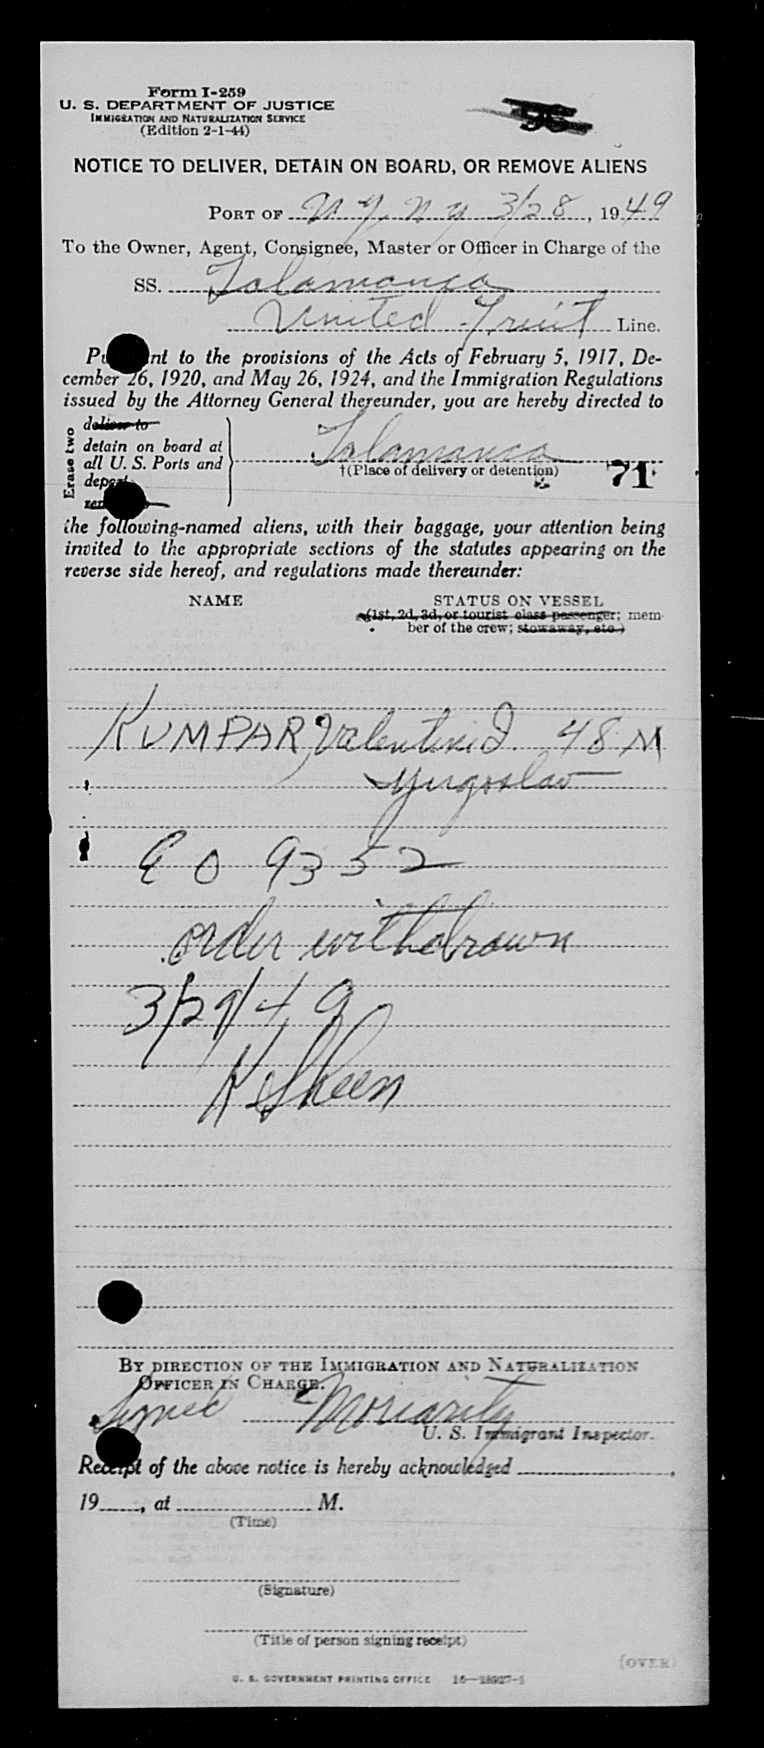 Form I-259
U. S. DEPARTMENT OF JUSTICE
IMMIGRATION AND NATURALIZATION SERVICE
(Edition 2-1-44)
NOTICE TO DELIVER, DETAIN ON BOARD, OR REMOVE ALIENS
PORT OF N. Y. N. Y. 3/28, 1949
To the Owner, Agent, Consignee, Master or Officer in Charge of the
SS. Talamanca
United Fruit Line.
Pursuant to the provisions of the Acts of February 5, 1917, De-
cember 26, 1920, and May 26, 1924, and the Immigration Regulations
issued by the Attorney General thereunder, you are hereby directed to
Erase two
deliver to
detain on board at
all U. S. Ports and
deport
Talamanca
†(Place of delivery or detention)
71
the following-named aliens, with their baggage, your attention being
invited to the appropriate sections of the statutes appearing on the
reverse side hereof, and regulations made thereunder:
NAME STATUS ON VESSEL
(1st, 2d, 3d, or tourist class passenger; mem-
ber of the crew; stowaway, etc.)
KUMPAR, Valentine J. 48 M
Yugoslav
9352
order withdrawn
3/29/49
BY DIRECTION OF THE IMMIGRATION AND NATURALIZATION
OFFICER IN CHARGE.
Signed Moriarity
U. S. Immigrant Inspector.
Receipt of the above notice is hereby acknowledged
19, at M.
(Time)
(Signature)
(Title of person signing receipt)
(OVER)
U. S. GOVERNMENT PRINTING OFFICE 16—18927-1